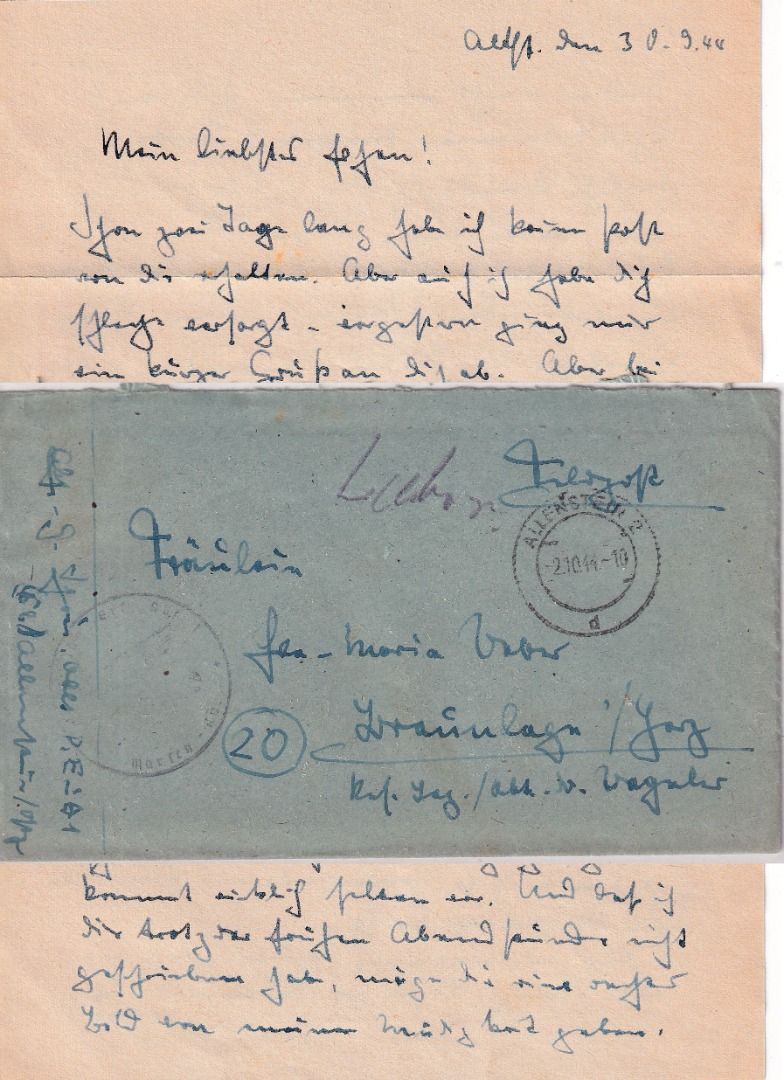 Allst. den 30.9.44
Mein liebster
Schon zwei Tage lang habe ich keine Post
von dir erhalten. Aber auch ich habe dich
schlecht versorgt - vorgestern ging nur
ein kurzer Gruß an dich ab. Aber bei
Feldpost
ALLENSTEIN 2
-2.10.44-10
d
Fräulein
Maria Weber
20 Braunlage / Harz
Res. Laz. / Abt.
Allenstein / Opr
kommt wirklich selten vor. Und daß ich
dir trotz der frühen Abendstunde nicht
geschrieben habe, möge dir eine rechtes
Bild von meiner Müdigkeit geben.